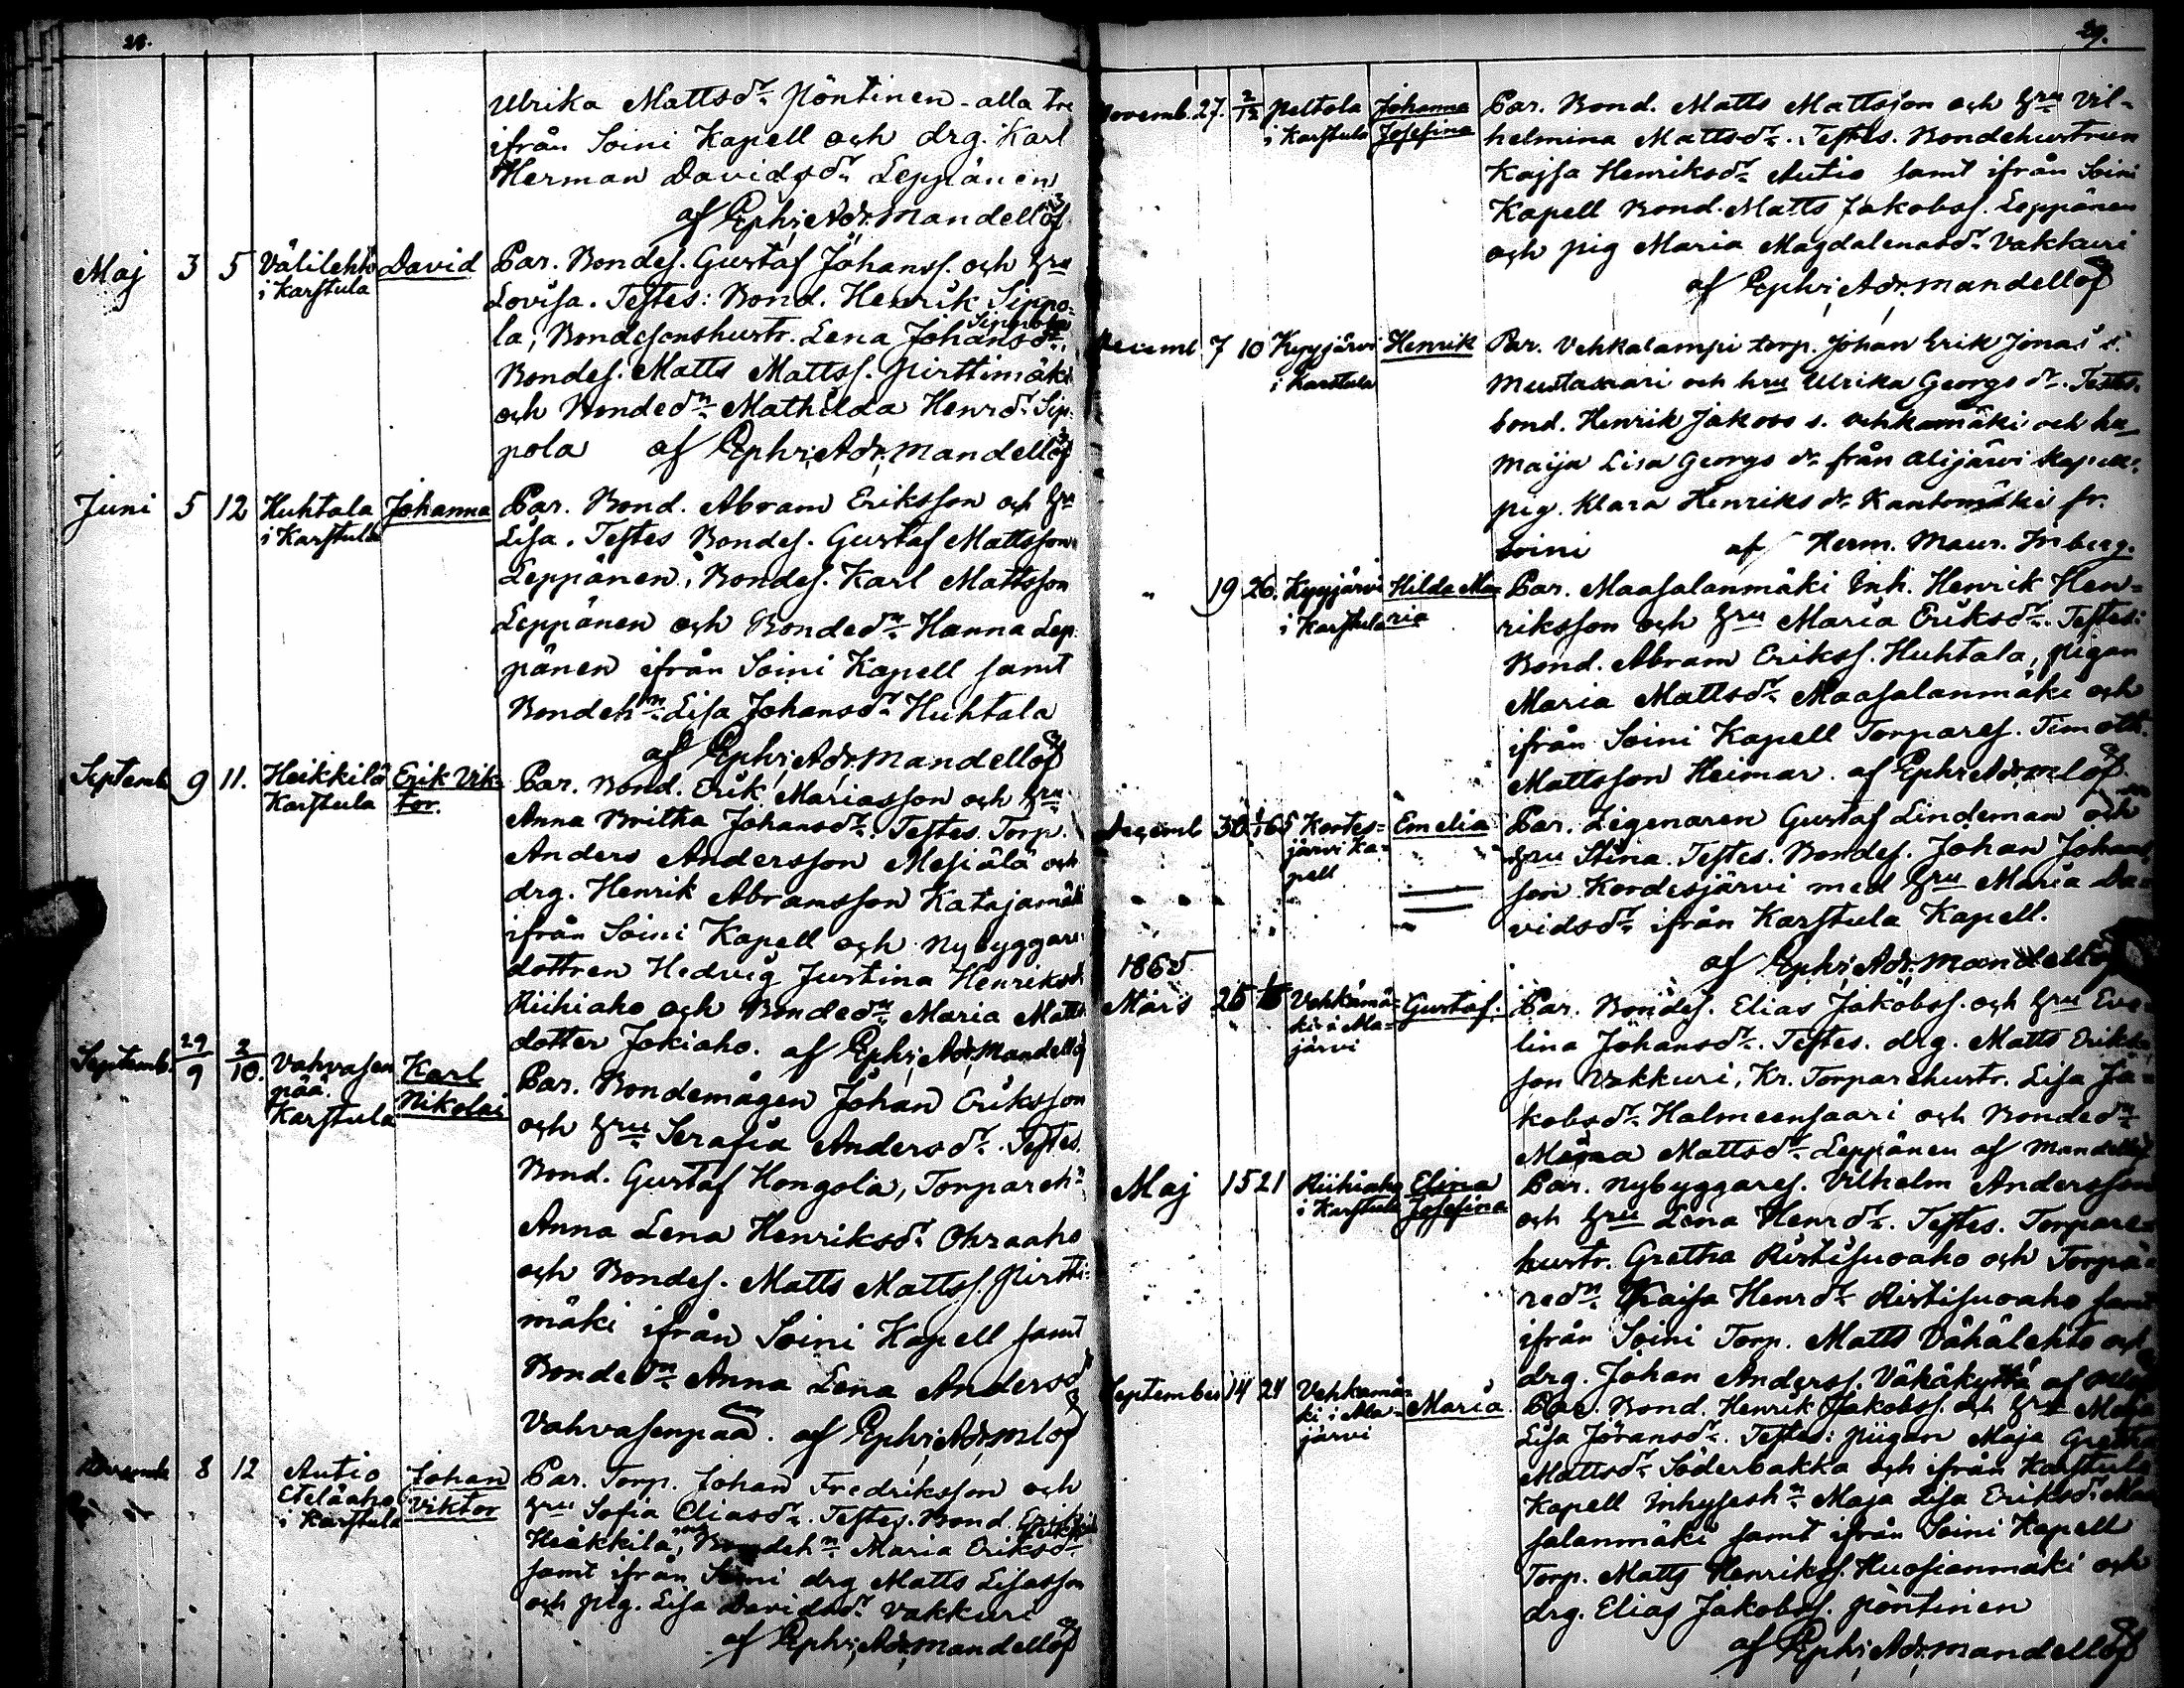 28.
Ulrika Mattsdr. Pöntinen - alla tre
ifrån Soini Kapell och drg. Karl
Herman Davidsdr. Leppänen
af Ephr. Adr. Mandellöf
Maj 3 5 Välilehto David Par. Bondes. Gustaf Johanss. och hru
i Karstula Lovisa. Testes: Bond. Henrik Sippo-
la, Bondesonshustr. Lena Johansdr. Sippola
Bondes. Matts Mattss. Pirttimäki
och Bondedn. Mathilda Henrdr. Sip-
pola af Ephr. Adr. Mandellöf
Juni 5 12 Huhtala Johanna Par. Bond. Abram Eriksson och hru
i Karstula Lisa. Testes Bondes. Gustaf Mattsson
Leppänen, Bondes. Karl Mattsson
Leppänen och Bondedn. Hanna Lep-
pänen ifrån Soini Kapell samt
Bondehn. Lisa Johansdr. Huhtala
af Ephr. Adr. Mandellöf
Septemb. 9 11. Heikkilä Erik Vik- Par. Bond. Erik Mariasson och hru
Karstula tor. Anna Britha Johansdr. Testes. Torp.
Anders Andersson Mesiälä och
drg. Henrik Abramsson Katajamäki
ifrån Soini Kapell och nybyggare-
dottren Hedvig Justina Henriksdr.
Riihiaho och Bondedn. Maria Matts
dotter Jokiaho. af Ephr. Adr. Mandellöf
Septemb. 29/9 2/10. Vahvasen Karl Par. Bondemågen Johan Eriksson
pää. Nikolai och hru Serafia Andersdr. Testes.
Karstula Bond. Gustaf Hongola, Torpareh.
Anna Lena Henriksdr. Ohraaho
och Bondes. Matts Mattss. Pirtti-
mäki ifrån Soini Kapell samt
Bondedn. Anna Lena Andersdr.
Vahvasenpää. af Ephr. Adr. Mlöf
8 12 Autio Johan Par. Torp. Johan Fredriksson och
Eteläaho Viktor hru Sofia Eliasdr. Testes. Bond. Erik
i Karstula Heikkilä, Bondehn. Maria Eriksdr. Heikkilä
samt ifrån Soini drg Matts Lisasson
och pig. Lisa Davidsdr. Vakkuri
af Ephr. Adr. Mandellöf
29.
Novemb. 27. 2/12 Peltola Johanna Par. Bond. Matts Mattsson och hru Vil-
i Karstula Josefina helmina Mattsdr. Testes. Bondehustrun
Kajsa Henriksdr. Autio samt ifrån Soini
Kapell Bond. Matts Jakobss. Leppänen
och pig Maria Magdalenasdr. Vakkuri
af Ephr. Adr. Mandellöf
Decemb 7 10 Kyyjärvi Henrik Par. Vehkalampi torp. Johan Erik Jonas s.
i Karstula Mustasaari och hru Ulrika Georgs dr. Testes.
bond. Henrik Jakobs s. Vehkamäki och hu
Maija Lisa Georgs dr från Alijärvi kapell,
pig. Klara Henriks dr Kantomäki fr.
Soini af Herm. Maur. Inberg.
" 19 26. Kyyjärvi Hilda Ma- Par. Maasalanmäki Inh. Henrik Hen-
i Karstula ria riksson och hru Maria Eriksdr. Testes:
Bond. Abram Erikss. Huhtala, pigan
Maria Mattsdr. Maasalanmäki och
ifrån Soini Kapell Torpares. Timoth.
Mattsson Heimar. af Ephr. Adr. Mlöf
Decemb 30 1/1 65 Kortes- Emelia Par. Legenaren Gustaf Lindeman och
järvi Ka- hru Stina. Testes. Bondes. Johan Johans-
pell son Kordesjärvi med hru Maria Da-
vidsdr. ifrån Karstula Kapell.
af Ephr. Adr. Mandellöf
1865
Mars 25 Vehkamä- Gustaf. Par. Bondes. Elias Jakobss. och hru Eve-
ki i Ala- lina Johansdr. Testes. drg. Matts Eriks-
järvi son Vakkuri, Kr. Torparehustr. Lisa Ja-
kobsdr. Halmeensaari och Bondedn.
Mattsdr. Leppänen af Mandellöf
Maj 15 21 Riihiaho Elina Par. Nybyggares. Vilhelm Andersson
i Karstula Josefina och hru Lena Henrdr. Testes. Torpare-
hustr. Gretha Ristisuoaho och Torpa-
redn. Kaisa Henrdr. Ristisuoaho samt
ifrån Soini Torp. Matts Vähälehto och
drg. Johan Anderss. Vähäkyttä af
September 14 24 Vehkamä- Maria Par. Bond. Henrik Jakobss. och hru Maja
ki i Ala- Lisa Göransdr. Testes: pigan Maja Gretha
järvi Mattsdr. Söderbakka och ifrån Karstula
Kapell Inhysesh. Maja Lisa Eriksdr. Maa-
salanmäki samt ifrån Soini Kapell
Torp. Matts Henrikss. Huosianmäki och
drg. Elias Jakobss. Pöntinen
af Ephr. Adr. Mandellöf